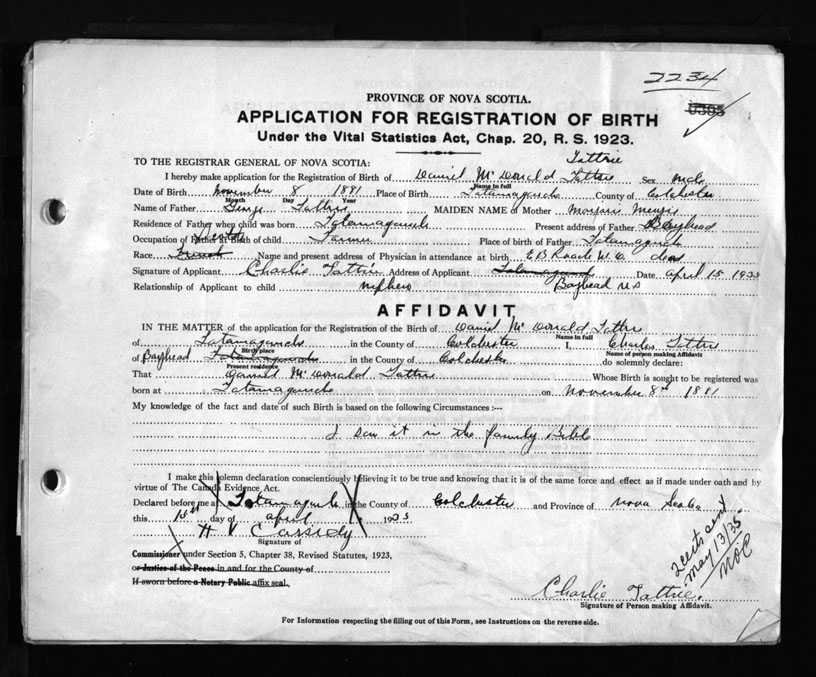 2234
PROVINCE OF NOVA SCOTIA.
APPLICATION FOR REGISTRATION OF BIRTH
Under the Vital Statistics Act, Chap. 20, R. S. 1923.
Tattrie
TO THE REGISTRAR GENERAL OF NOVA SCOTIA:
I hereby make application for the Registration of Birth of Daniel McDonald Tattrie Sex male
Name in full
Date of Birth November 8 1881 Place of Birth Tatamagouche County of Colchester
Month Day Year
Name of Father George Tattrie MAIDEN NAME of Mother
Residence of Father when child was born Tatamagouche Present address of Father Bayhead
Occupation of Father at Birth of child Farmer Place of birth of Father Tatamagouche
Race French Name and present address of Physician in attendance at birth E B Roach M. D. dead
Signature of Applicant Charlie Tattrie Address of Applicant Tatamagouche Date April 15 1935
Relationship of Applicant to child nephew Bayhead N S
AFFIDAVIT
IN THE MATTER of the application for the Registration of the Birth of Daniel McDonald Tattrie
Name in full
of Tatamagouche in the County of Colchester I, Charles Tattrie
Birth place Name of person making Affidavit
of Bayhead Tatamagouche in the County of Colchester do solemnly declare:
Present residence
That Daniel McDonald Tattrie Whose Birth is sought to be registered was
born at Tatamagouche on November 8th 1881
My knowledge of the fact and date of such Birth is based on the following Circumstances :—
I saw it in the family Bible
I make this solemn declaration conscientiously believing it to be true and knowing that it is of the same force and effect as if made under oath and by
virtue of The Canada Evidence Act.
Declared before me at Tatamagouche in the County of Colchester and Province of Nova Scotia
this 15th day of April 1935
H V Cassidy
Signature of
Commissioner under Section 5, Chapter 38, Revised Statutes, 1923,
or Justice of the Peace in and for the County of
If sworn before a Notary Public affix seal.
2 certs sent
May 13/35
Charlie Tattrie.
Signature of Person making Affidavit.
For Information respecting the filling out of this Form, see Instructions on the reverse side.